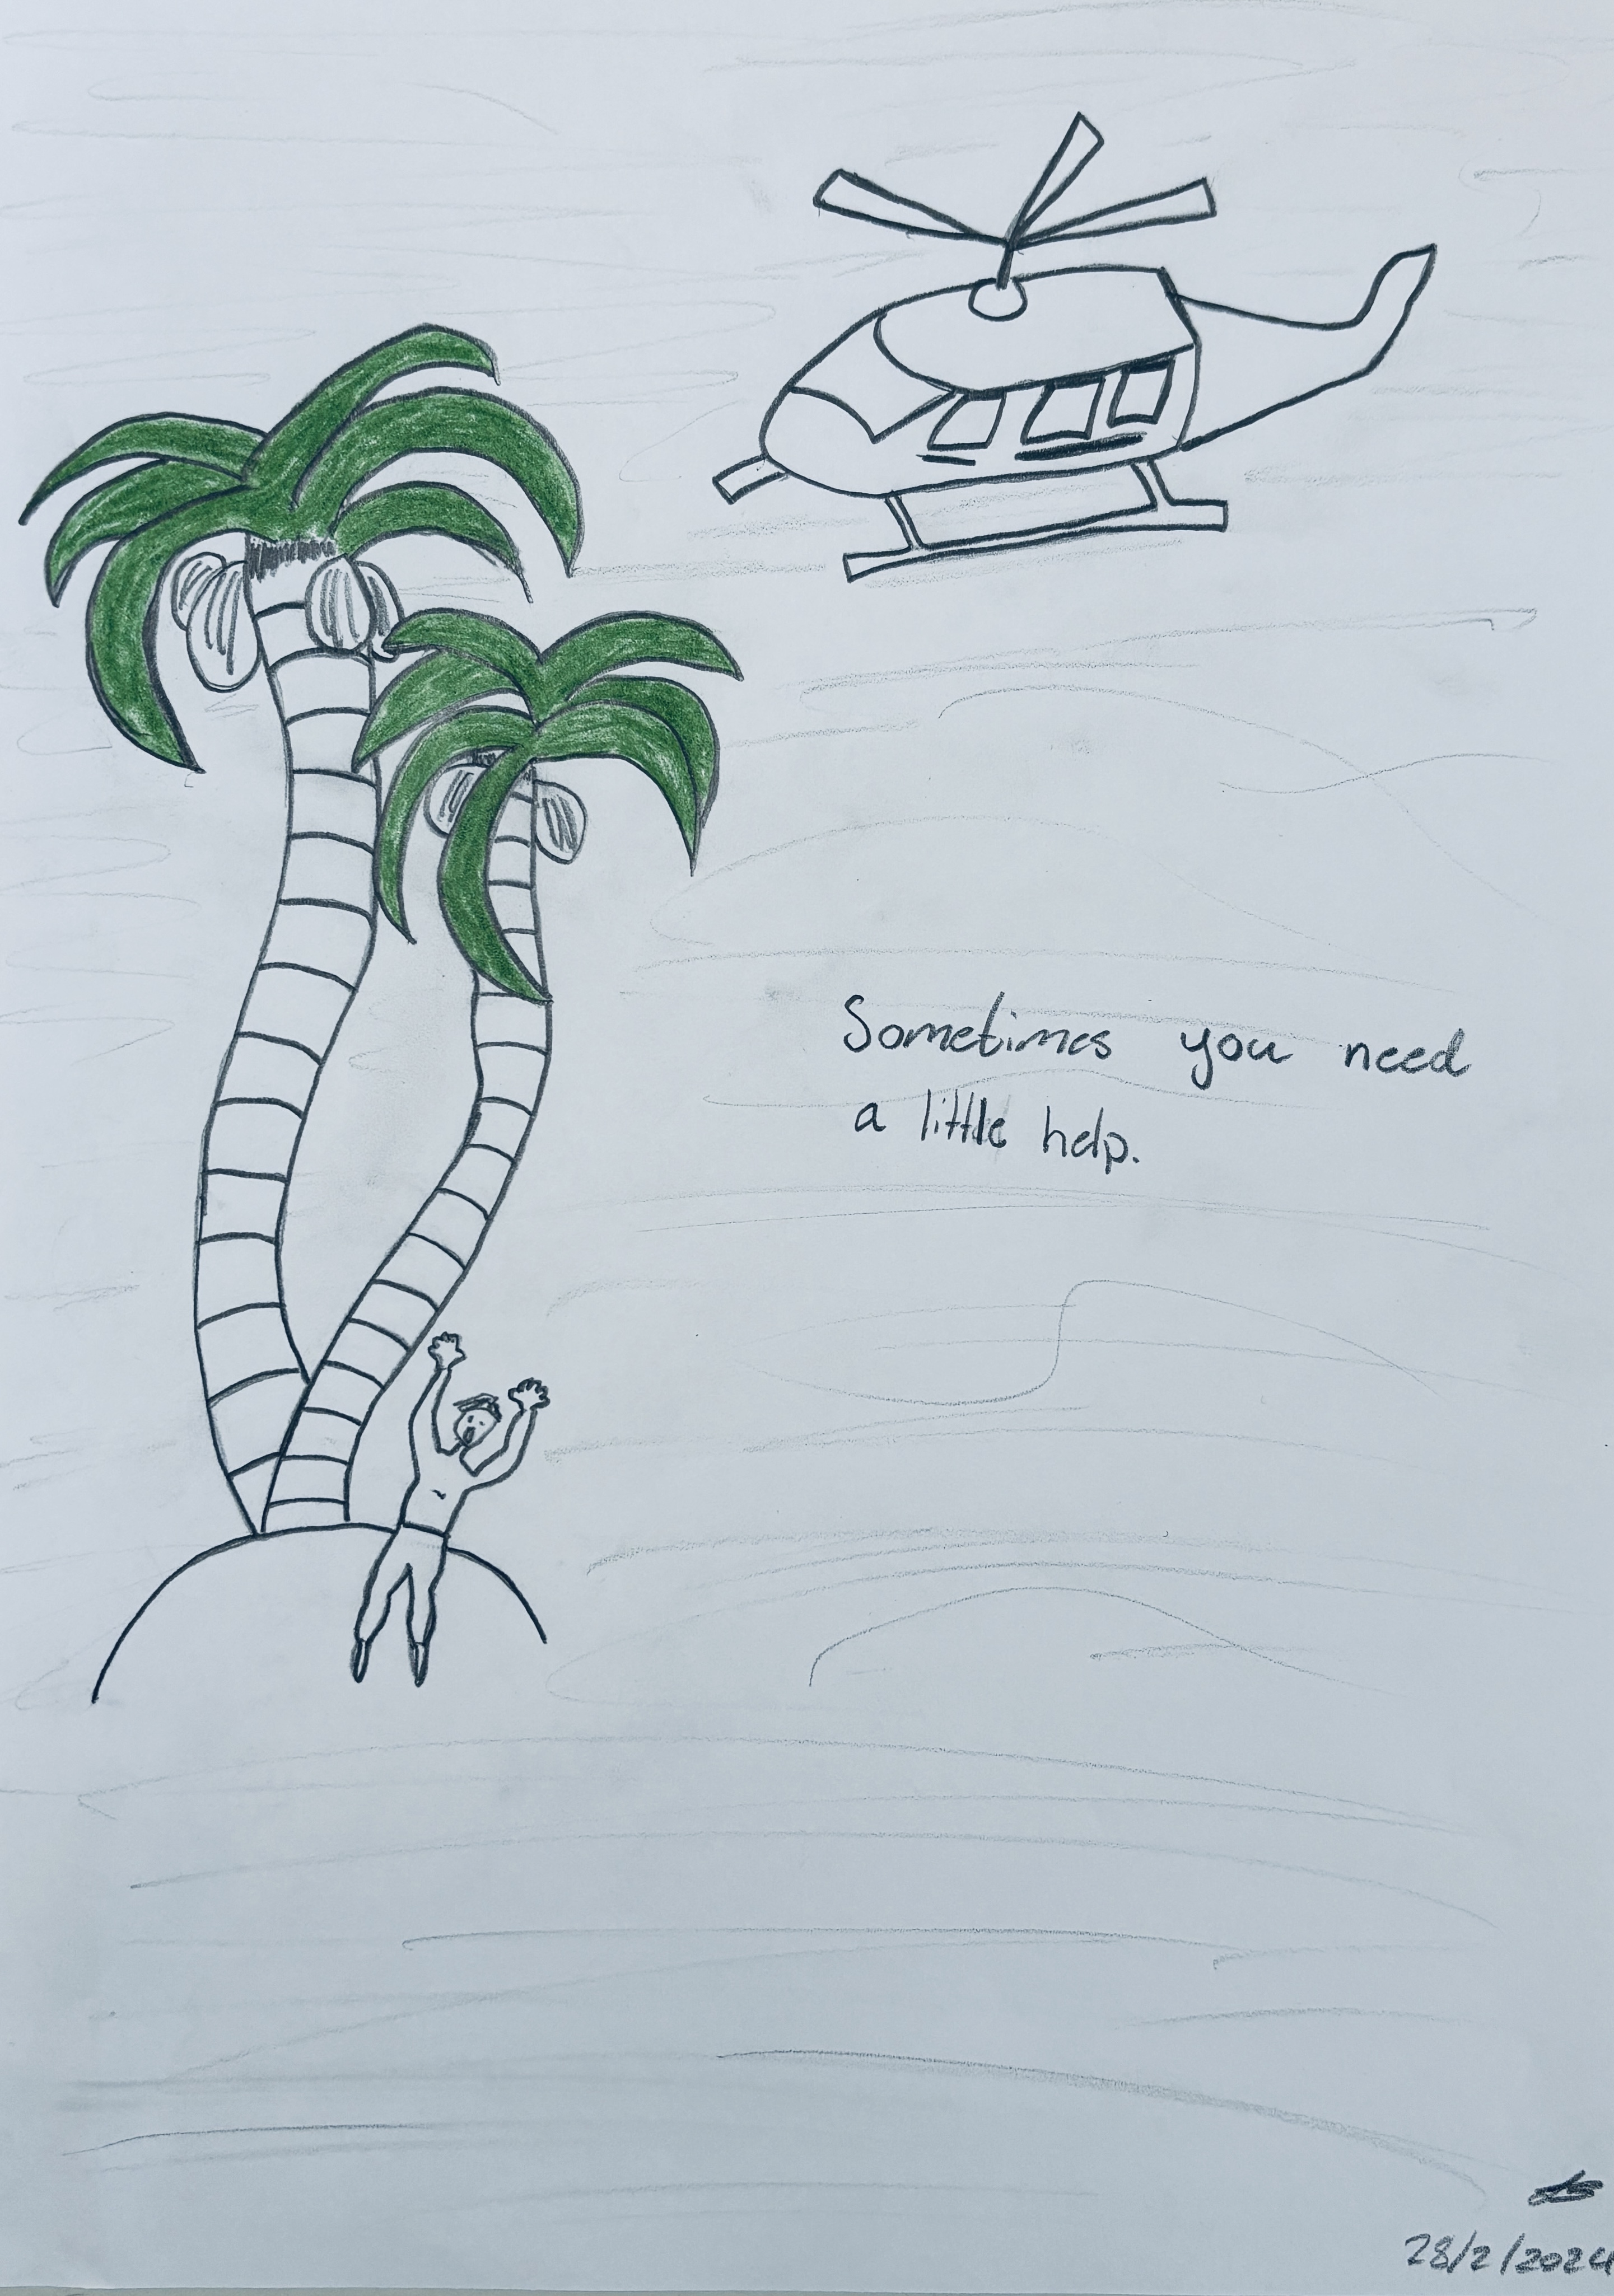 Sometimes you need
a little help.
28/2/2024